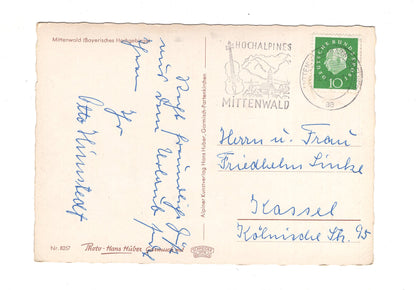 Mittenwald (Bayerisches Hochgebirge)
Recht freundliche Grüße
aus dem Urlaub sendet
Ihnen Ihr
Otto Himstedt
Nr. 8257
Photo - Hans Huber Garmisch
Alpiner Kunstverlag Hans Huber, Garmisch-Partenkirchen
HOCHALPINES
MITTENWALD
DEUTSCHE BUNDESPOST
10
Herrn u. Frau
Friedhelm Linke
Kassel
Kölnische Str. 95